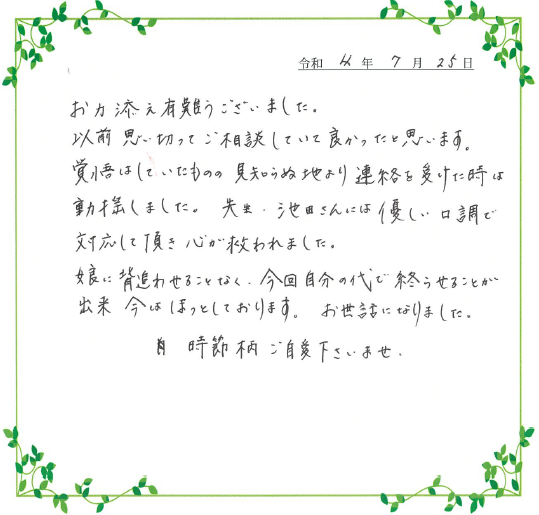 令和 4 年 7 月 25 日
お力添え有難うございました。
以前思い切ってご相談していて良かったと思います。
覚悟はしていたものの見知らぬ地より連絡を受けた時は
動揺しました。 先生・池田さんには優しい口調で
対応して頂き心が救われました。
娘に背追わせることなく、今回自分の代で終らせることが
出来 今はほっとしております。 お世話になりました。
時節柄ご自愛下さいませ.